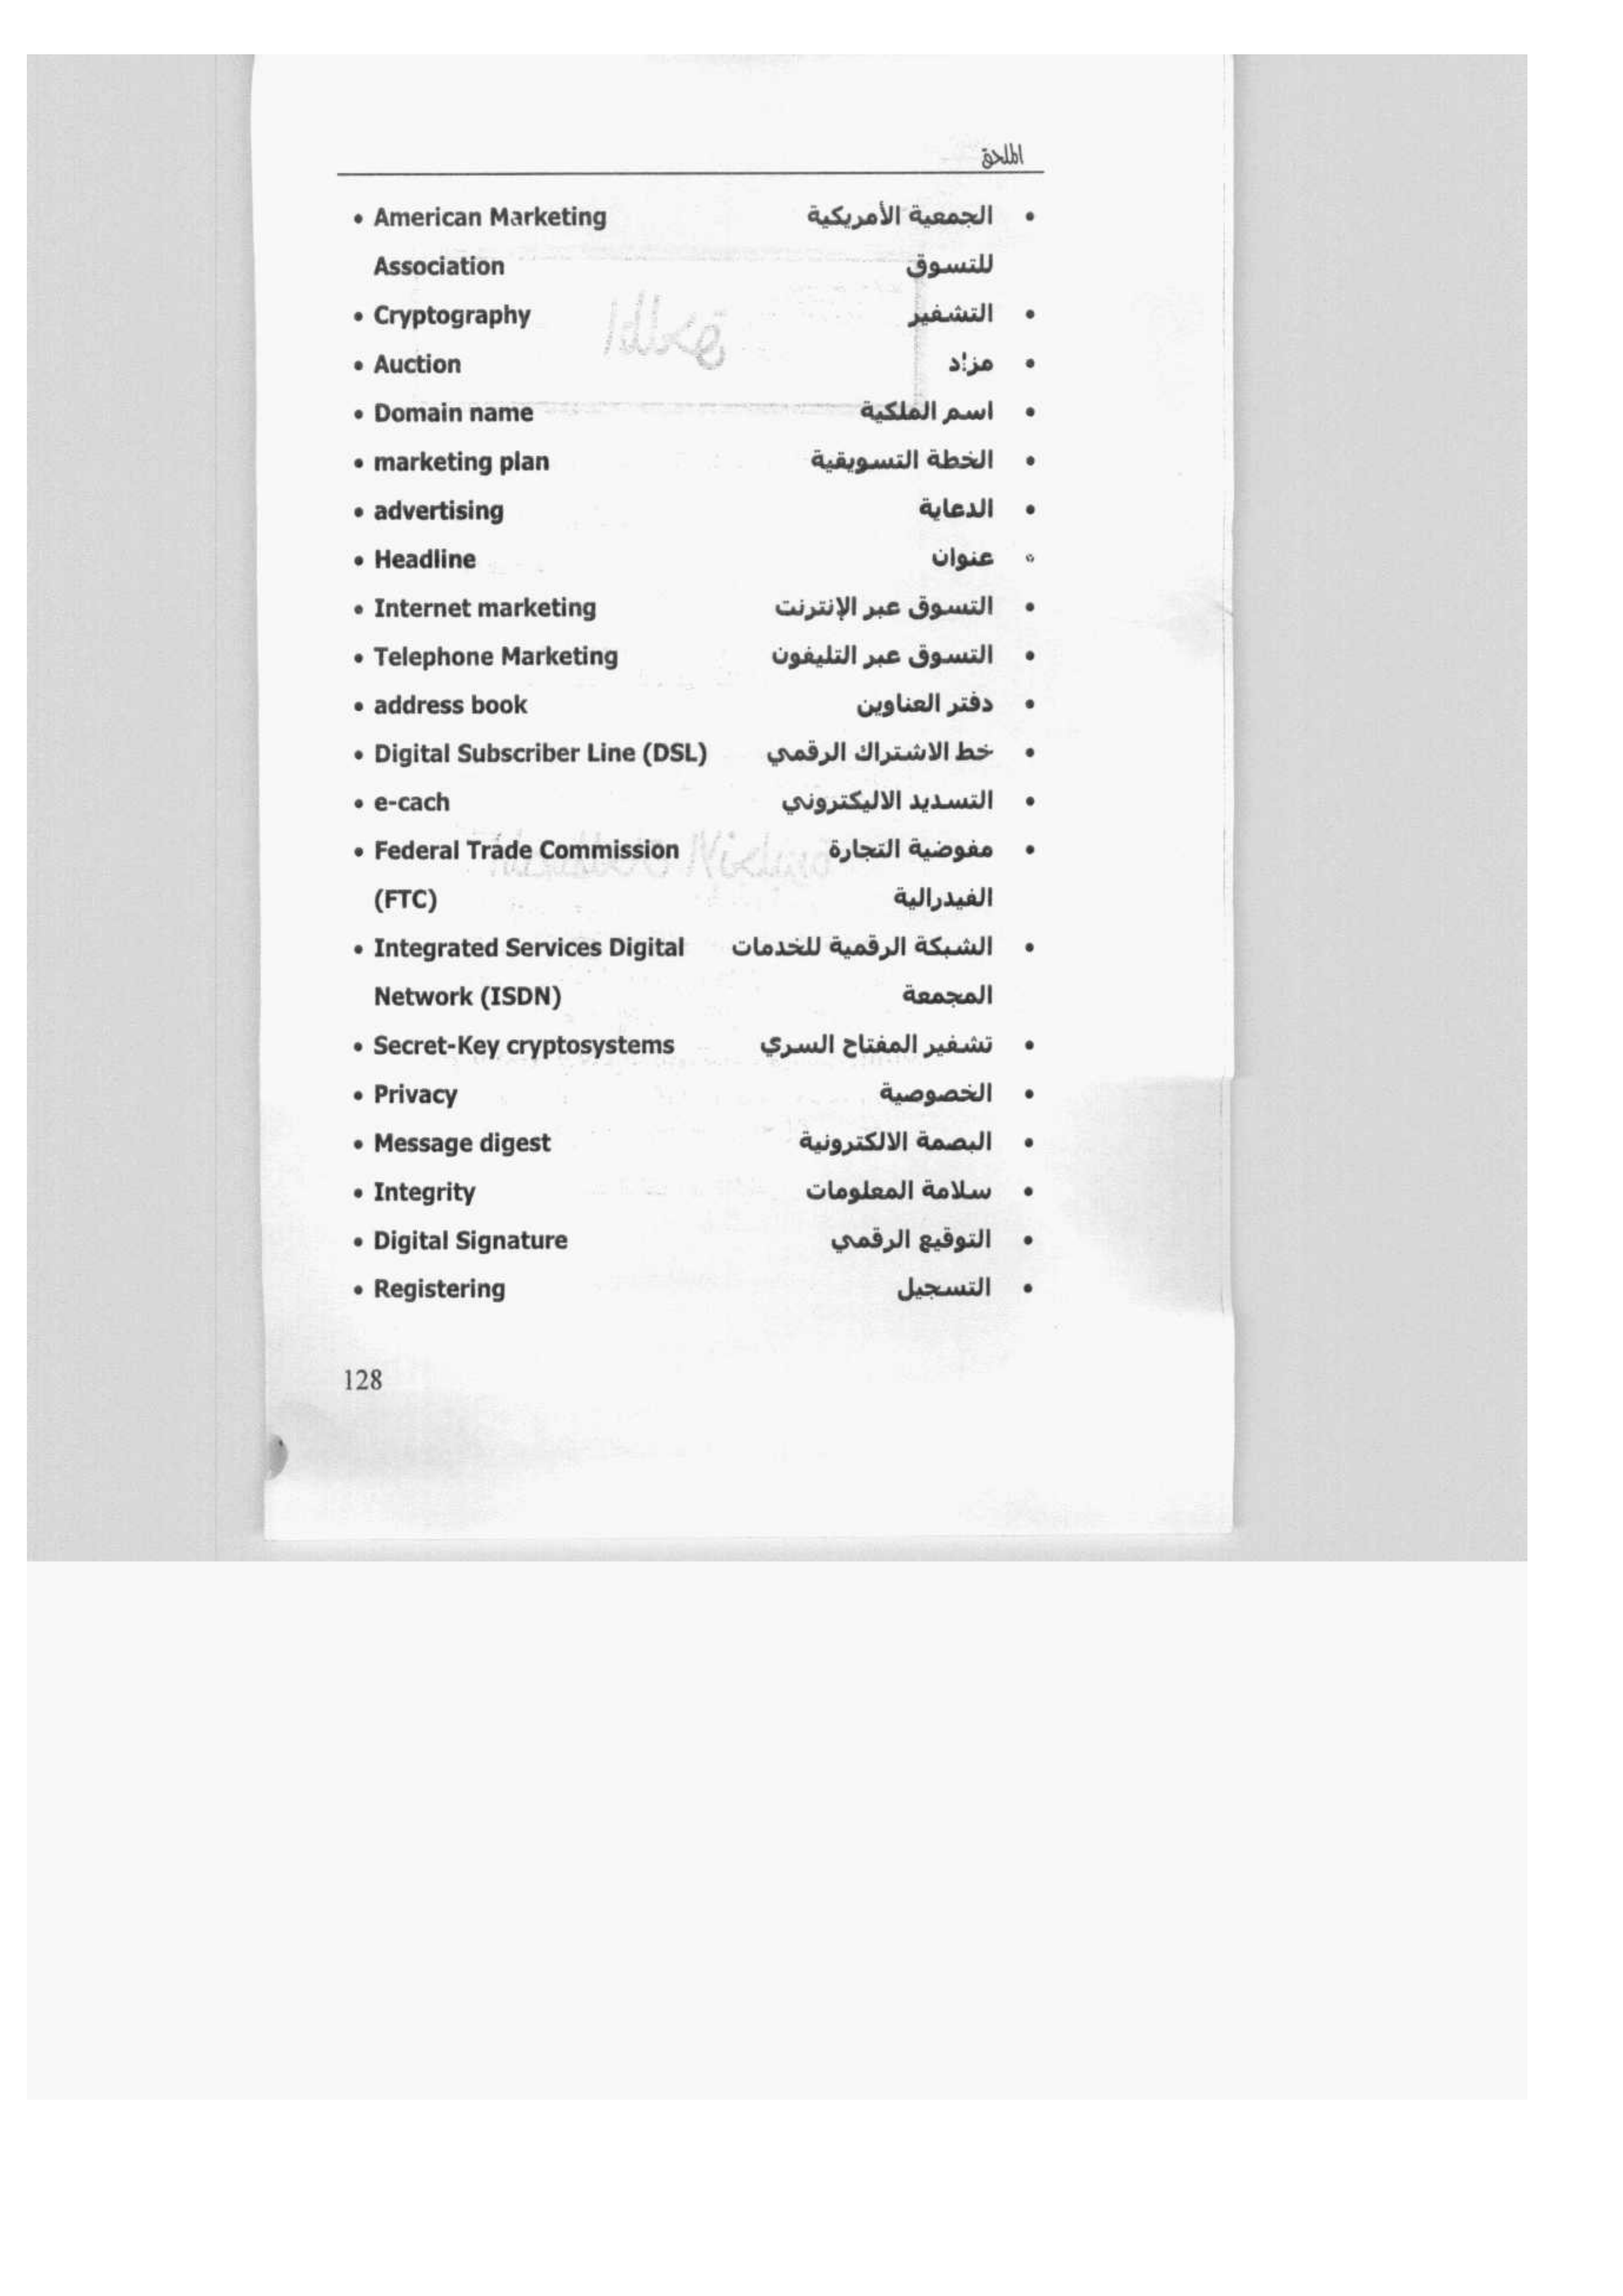 الملحق
• American Marketing الجمعية الأمريكية •
Association للتسوق
• Cryptography التشفير •
• Auction مزاد •
• Domain name اسم الملكية •
• marketing plan الخطة التسويقية •
• advertising الدعاية •
• Headline عنوان •
• Internet marketing التسوق عبر الإنترنت •
• Telephone Marketing التسوق عبر التليفون •
• address book دفتر العناوين •
• Digital Subscriber Line (DSL) خط الاشتراك الرقمي •
• e-cach التسديد الاليكتروني •
• Federal Trade Commission مفوضية التجارة •
(FTC) الفيدرالية
• Integrated Services Digital الشبكة الرقمية للخدمات •
Network (ISDN) المجمعة
• Secret-Key cryptosystems تشفير المفتاح السري •
• Privacy الخصوصية •
• Message digest البصمة الالكترونية •
• Integrity سلامة المعلومات •
• Digital Signature التوقيع الرقمي •
• Registering التسجيل •
128